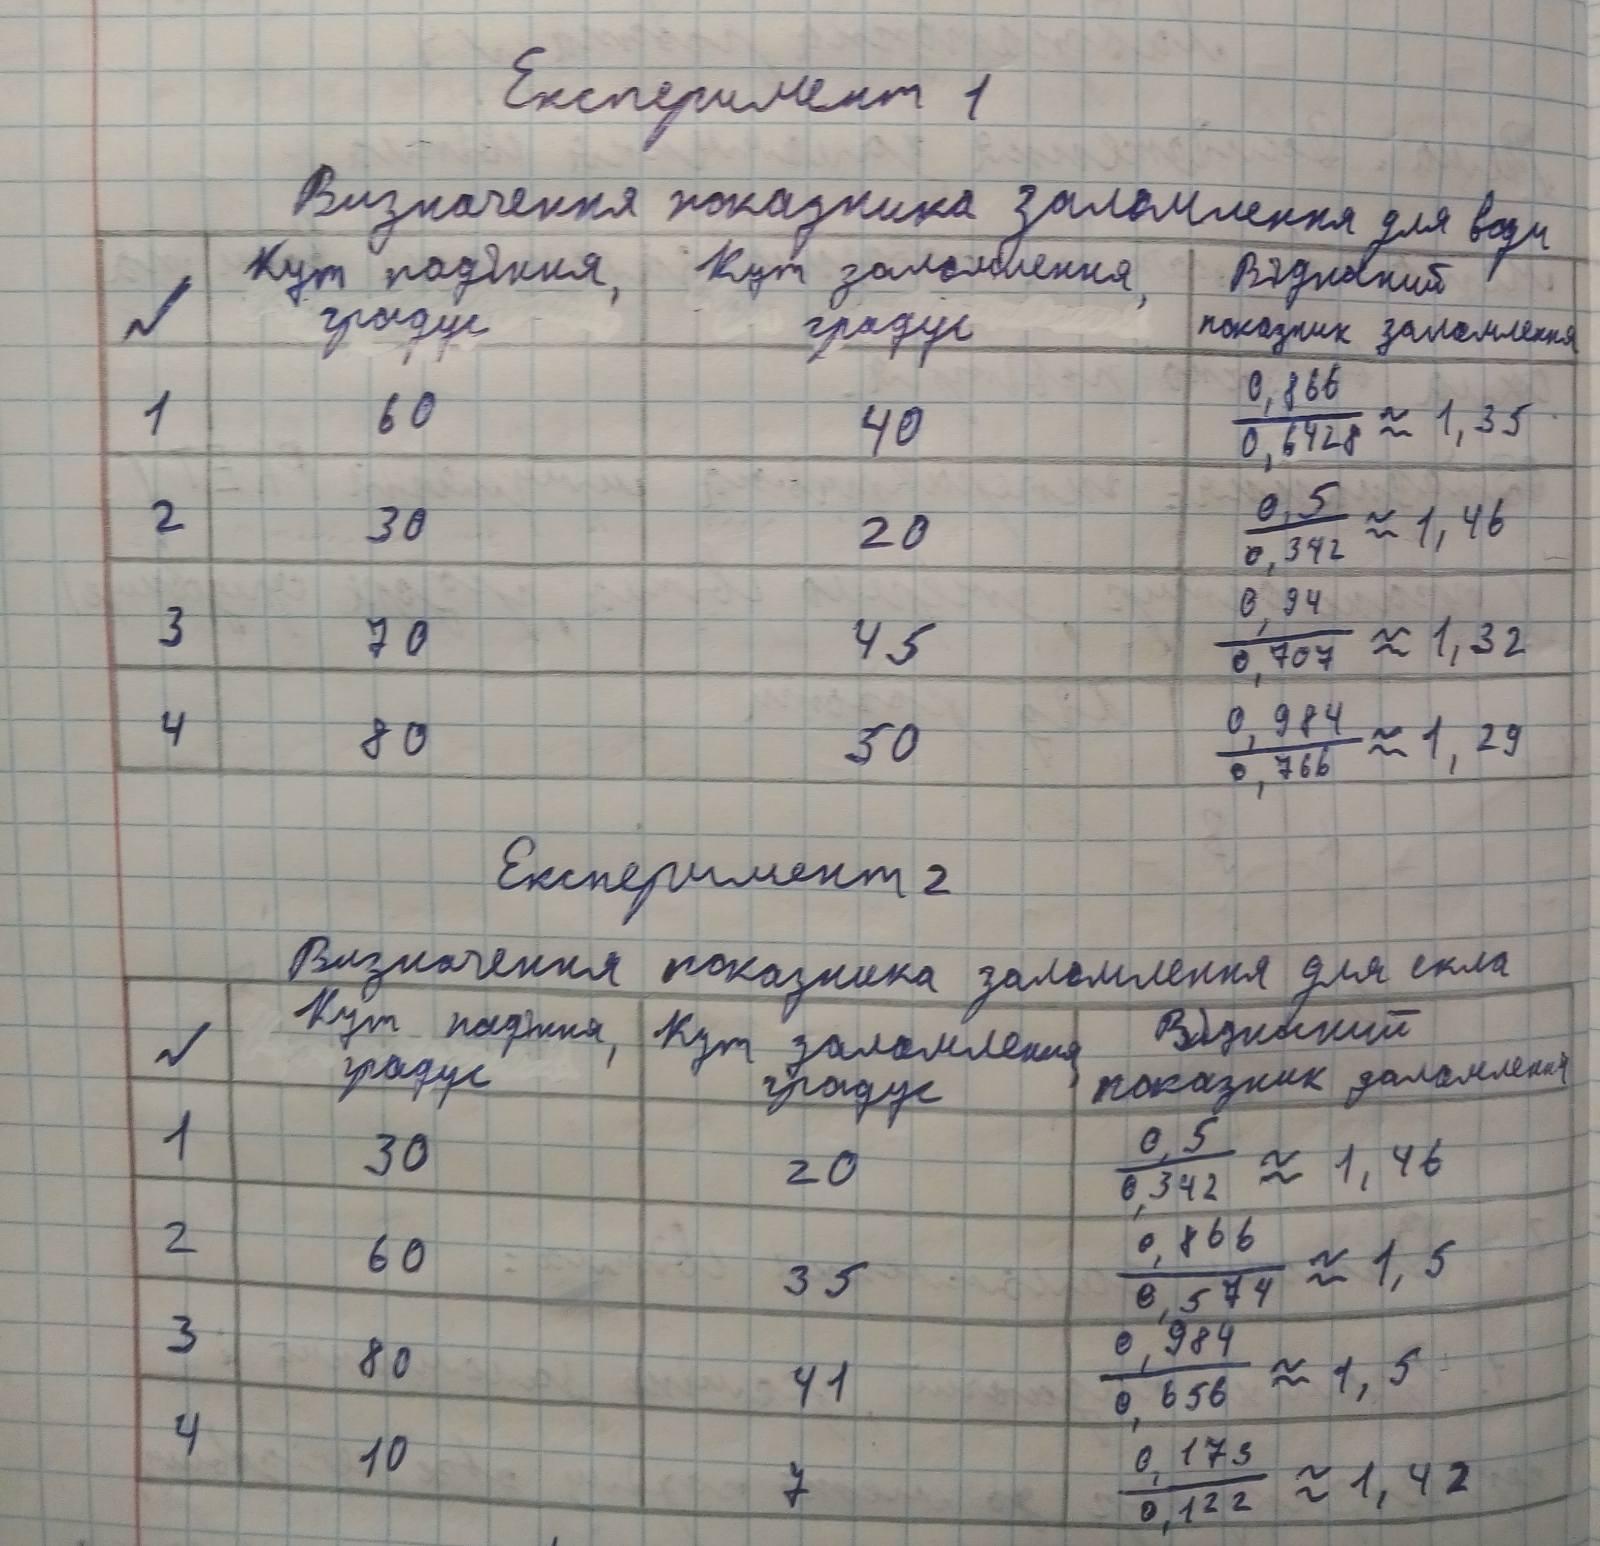 Експеримент 1
Визначення показника заломлення для води
№ Кут падіння, градус Кут заломлення, градус Відносний показник заломлення
1 60 40 0,866/0,6428 ≈ 1,35
2 30 20 0,5/0,342 ≈ 1,46
3 70 45 0,94/0,707 ≈ 1,32
4 80 50 0,984/0,766 ≈ 1,29
Експеримент 2
Визначення показника заломлення для скла
№ Кут падіння, градус Кут заломлення, градус Відносний показник заломлення
1 30 20 0,5/0,342 ≈ 1,46
2 60 35 0,866/0,574 ≈ 1,5
3 80 41 0,984/0,656 ≈ 1,5
4 10 7 0,173/0,122 ≈ 1,42